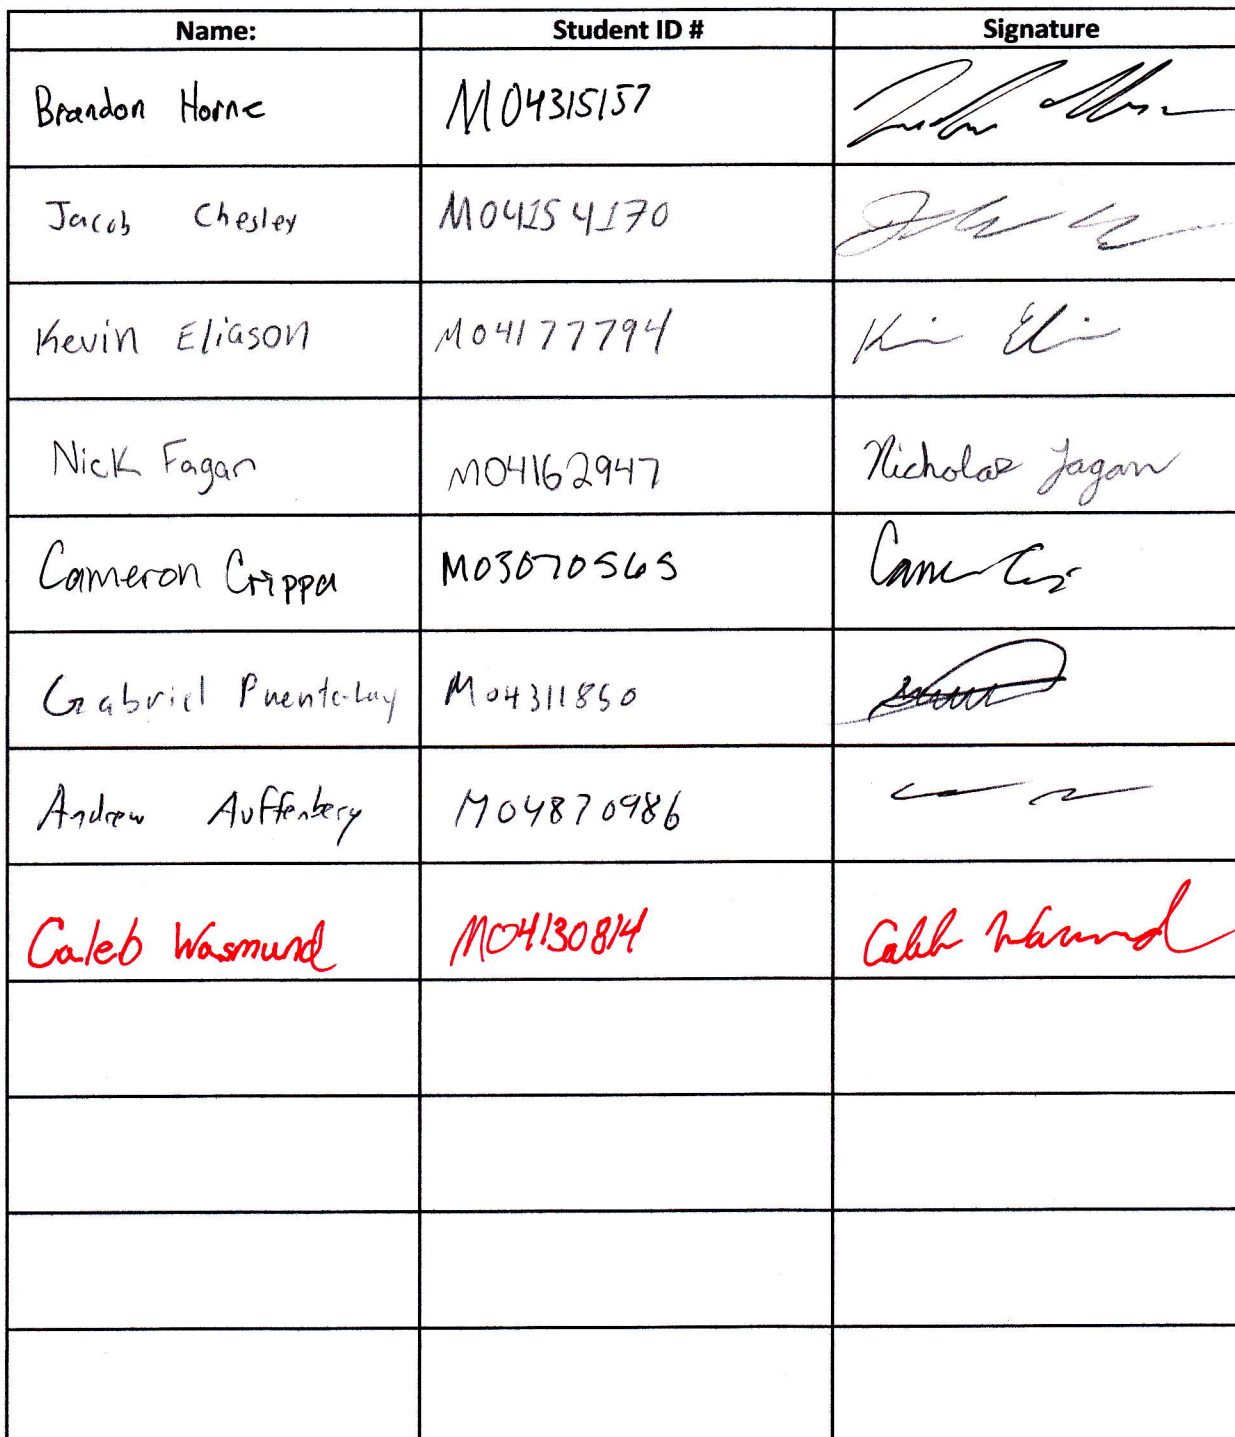 Name: Student ID # Signature
Brandon Horne M04315157
Jacob Chesley M04154170
Kevin Eliason M04177794
Nick Fagan M04162947 Nicholas Fagan
Cameron Crippa M03070565
Gabriel M04311850
Andrew Auffenberg M04870986
Caleb Wasmund M04130814 Caleb Wasmund